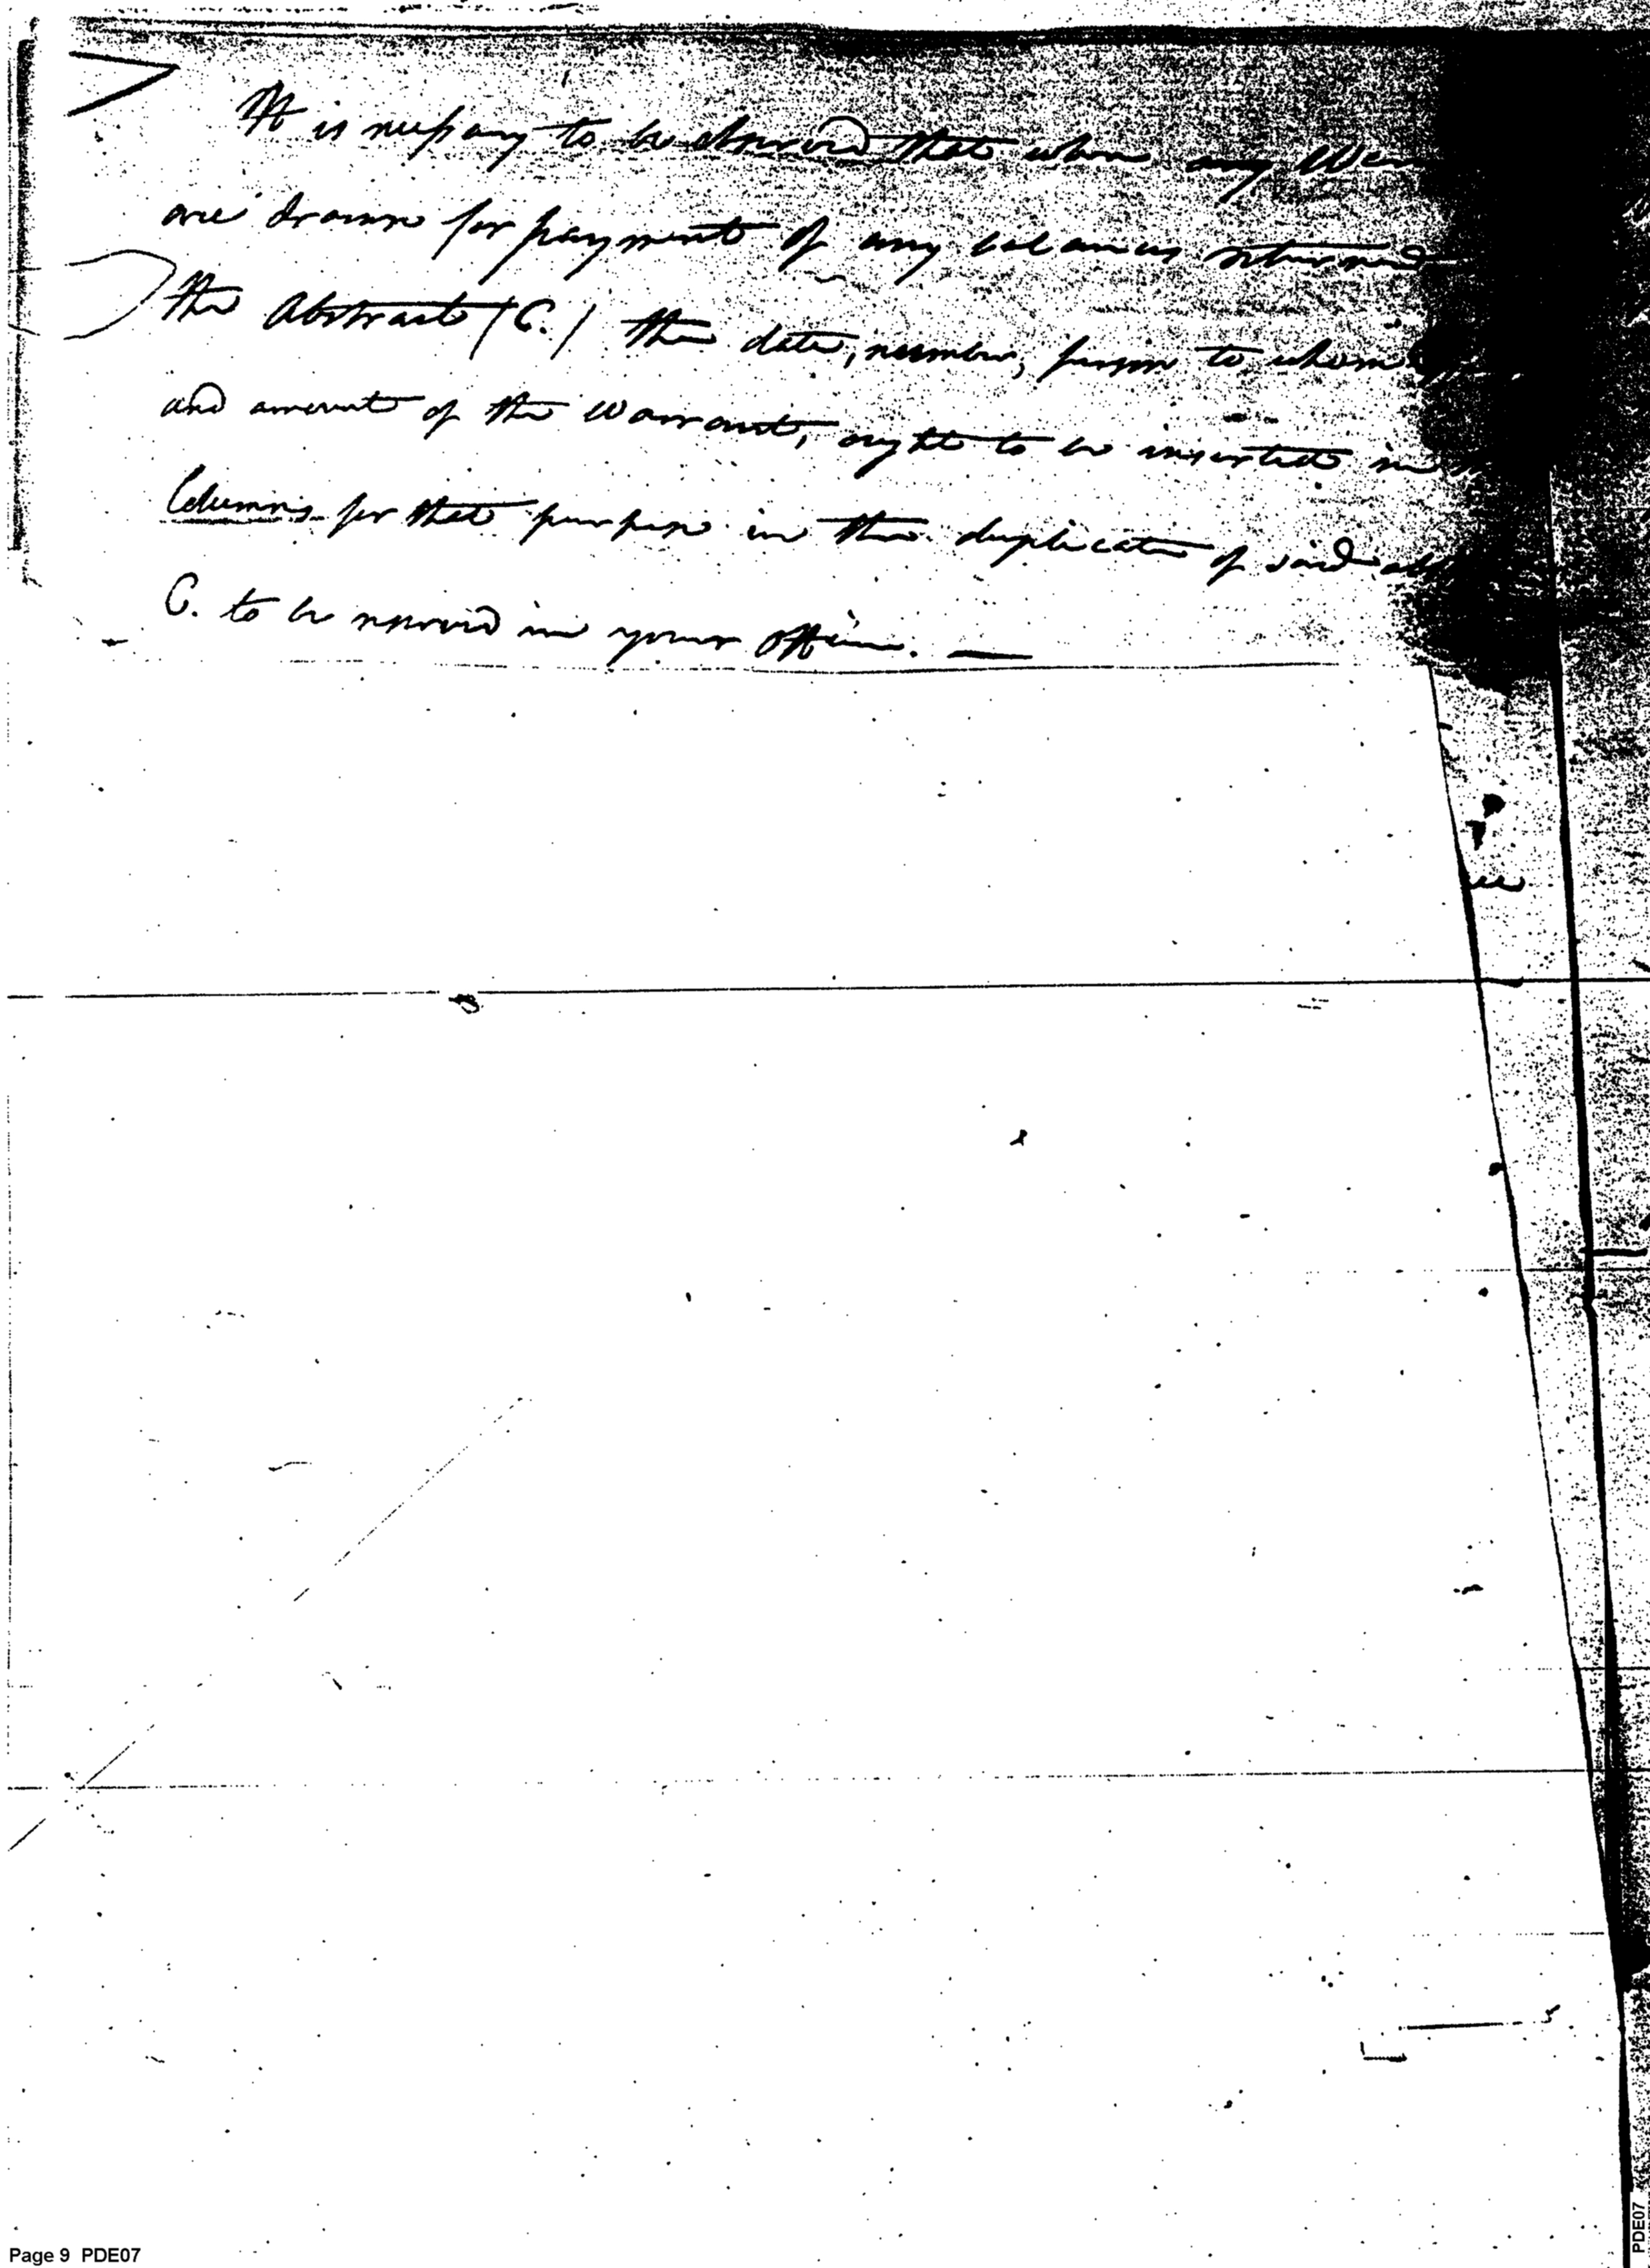 It is necessary to be observed that when any War
are drawn for payment of any balances returned
the Abstract (C.) the date, number, person to whom
and amount of the Warrant, ought to be inserted in
Columns for that purpose in the duplicate of said
C. to be reserved in your Office. —
Page 9 PDE07
PDE07